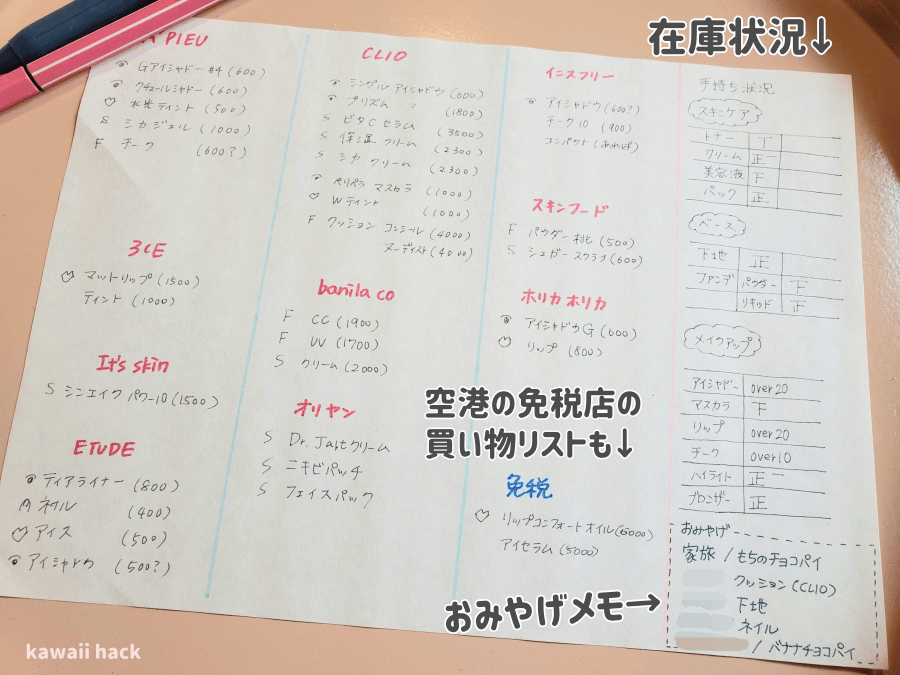 在庫状況↓
A'PIEU
Gアイシャドー#4(600)
クチュールシャドー(600)
水光ティント(500)
S シカジェル(1000)
F チーク(600?)
3CE
マットリップ(1500)
ティント(1000)
It's skin
S シンエイク パワー10(1500)
ETUDE
ティアライナー(800)
ネイル(400)
アイス(500)
アイシャドウ(500?)
CLIO
シングル アイシャドウ(600)
プリズム 〃(1800)
S ビタCセラム(3500)
S 保湿クリーム(2300)
S シカクリーム(2300)
ペリペラ マスカラ(1000)
Wティント(1000)
F クッション コンシール(4000)
ヌーディスト(4000)
banila co
F CC(1900)
F UV(1700)
S クリーム(2000)
オリヤン
S Dr.Jartクリーム
S ニキビパッチ
S フェイスパック
イニスフリー
アイシャドウ(600?)
チーク10(900)
コンパクト(あれば)
スキンフード
F パウダー桃(500)
S シュガースクラブ(600)
ホリカホリカ
アイシャドウG(600)
リップ(800)
空港の免税店の
買い物リストも↓
免税
リップコンフォートオイル(6000)
アイセラム(5000)
手持ち状況
スキンケア
トナー 丁
クリーム 正一
美容液 下
パック 正
ベース
下地 正
ファンデ パウダー 下
リキッド 正
メイクアップ
アイシャドー over20
マスカラ 下
リップ over20
チーク over10
ハイライト 正一
ブロンザー 正
おみやげメモ→
おみやげ
家族/もちのチョコパイ
クッション(CLIO)
下地
/ネイル
/バナナチョコパイ
kawaii hack